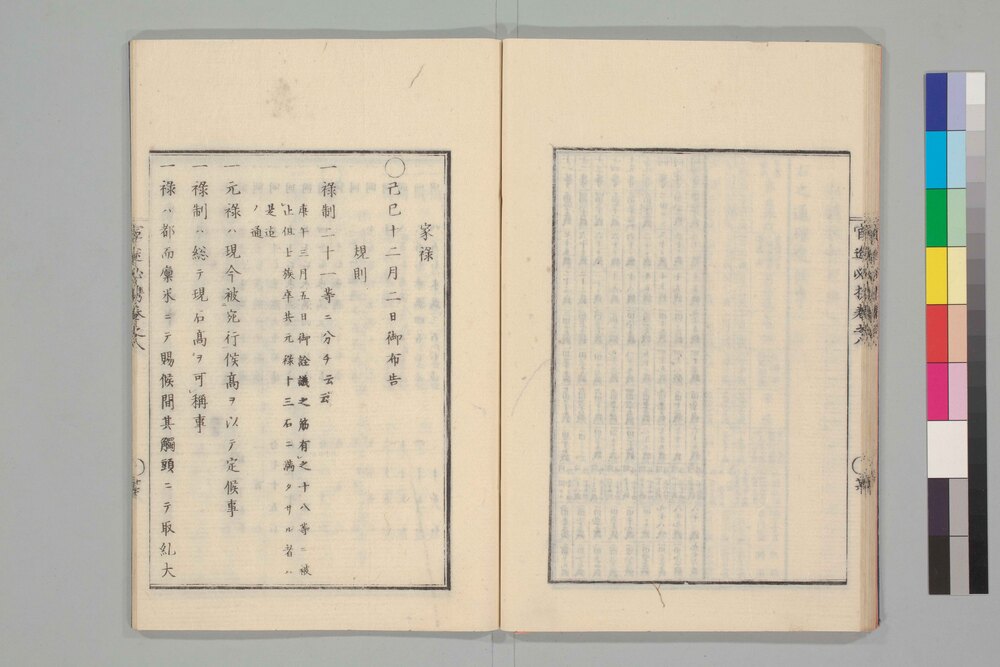 家禄
〇己巳十二月二日御布告
規則
一禄制二十一等ニ分チ云云
庚午三月五日御詮議之筋有之十八等ニ被
止但士族卒共元禄十三石ニ満タサル者ハ
是迄
ノ通
一元禄ハ現今被宛行候高ヲ以テ定候事
一禄制ハ総テ現石高ヲ可稱事
一禄ハ都而廩米ニテ賜候間其觸頭ニテ取糺大